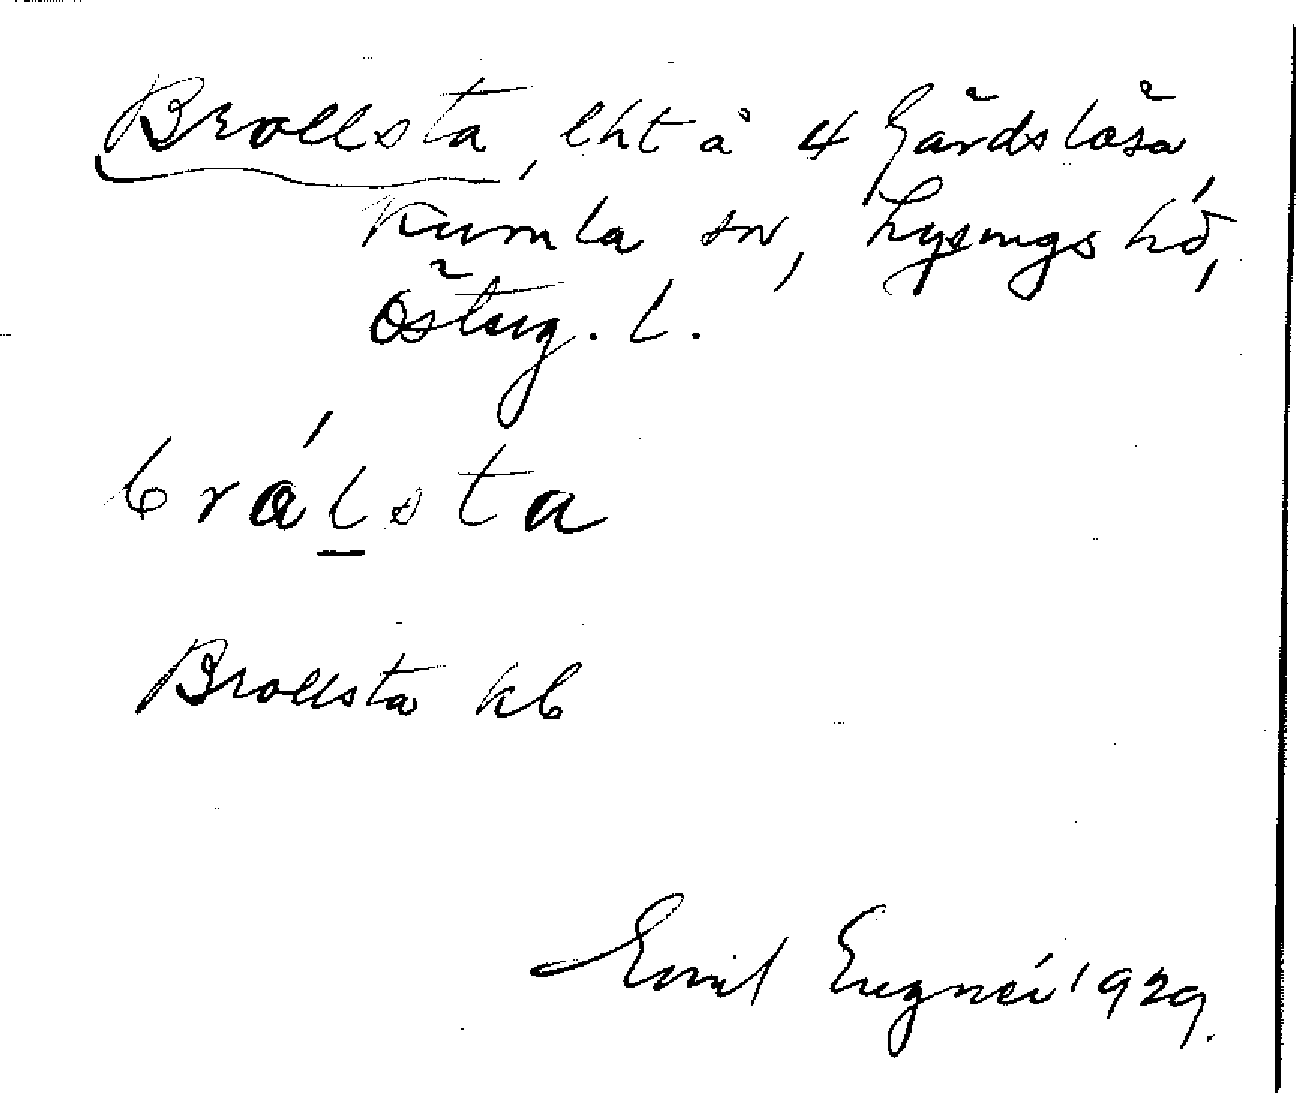 Brollsta, lht å 4 Gärdslösa
Kumla sn, Lysings hd,
Österg. l.
brålsta
Brollsta kb
Emil Eugnér 1929.